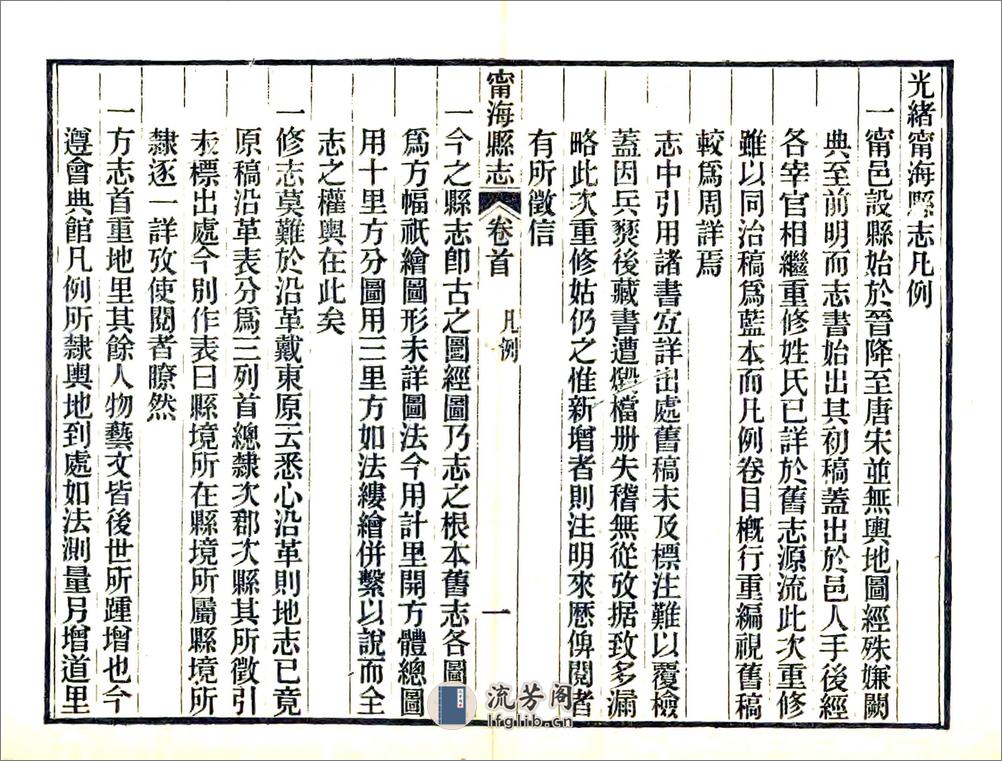 光緒甯海縣志凡例
一甯邑設縣始於晉降至唐宋並無輿地圖經殊嫌闕
典至前明而志書始出其初稿蓋出於邑人手後經
各宰官相繼重修姓氏已詳於舊志源流此次重修
雖以同治稿爲藍本而凡例卷目槪行重編視舊稿
較爲周詳焉
志中引用諸書宜詳出處舊稿未及標注難以覆檢
蓋因兵燹後藏書遭燬檔册失稽無從攷据致多漏
略此次重修姑仍之惟新增者則注明來歷俾閱者
有所徵信
甯海縣志
卷首
凡例
一
一今之縣志卽古之圖經圖乃志之根本舊志各圖
爲方幅祇繪圖形未詳圖法今用計里開方體總圖
用十里方分圖用三里方如法縷繪併繫以說而全
志之權輿在此矣
一修志莫難於沿革戴東原云悉心沿革則地志已竟
原稿沿革表分爲三列首總隸次郡次縣其所徵引
未標出處今別作表曰縣境所在縣境所屬縣境所
隸逐一詳攷使閱者瞭然
一方志首重地里其餘人物藝文皆後世所踵增也今
遵會典館凡例所隸輿地到處如法測量另增道里
流芳阁
lfglib.cn